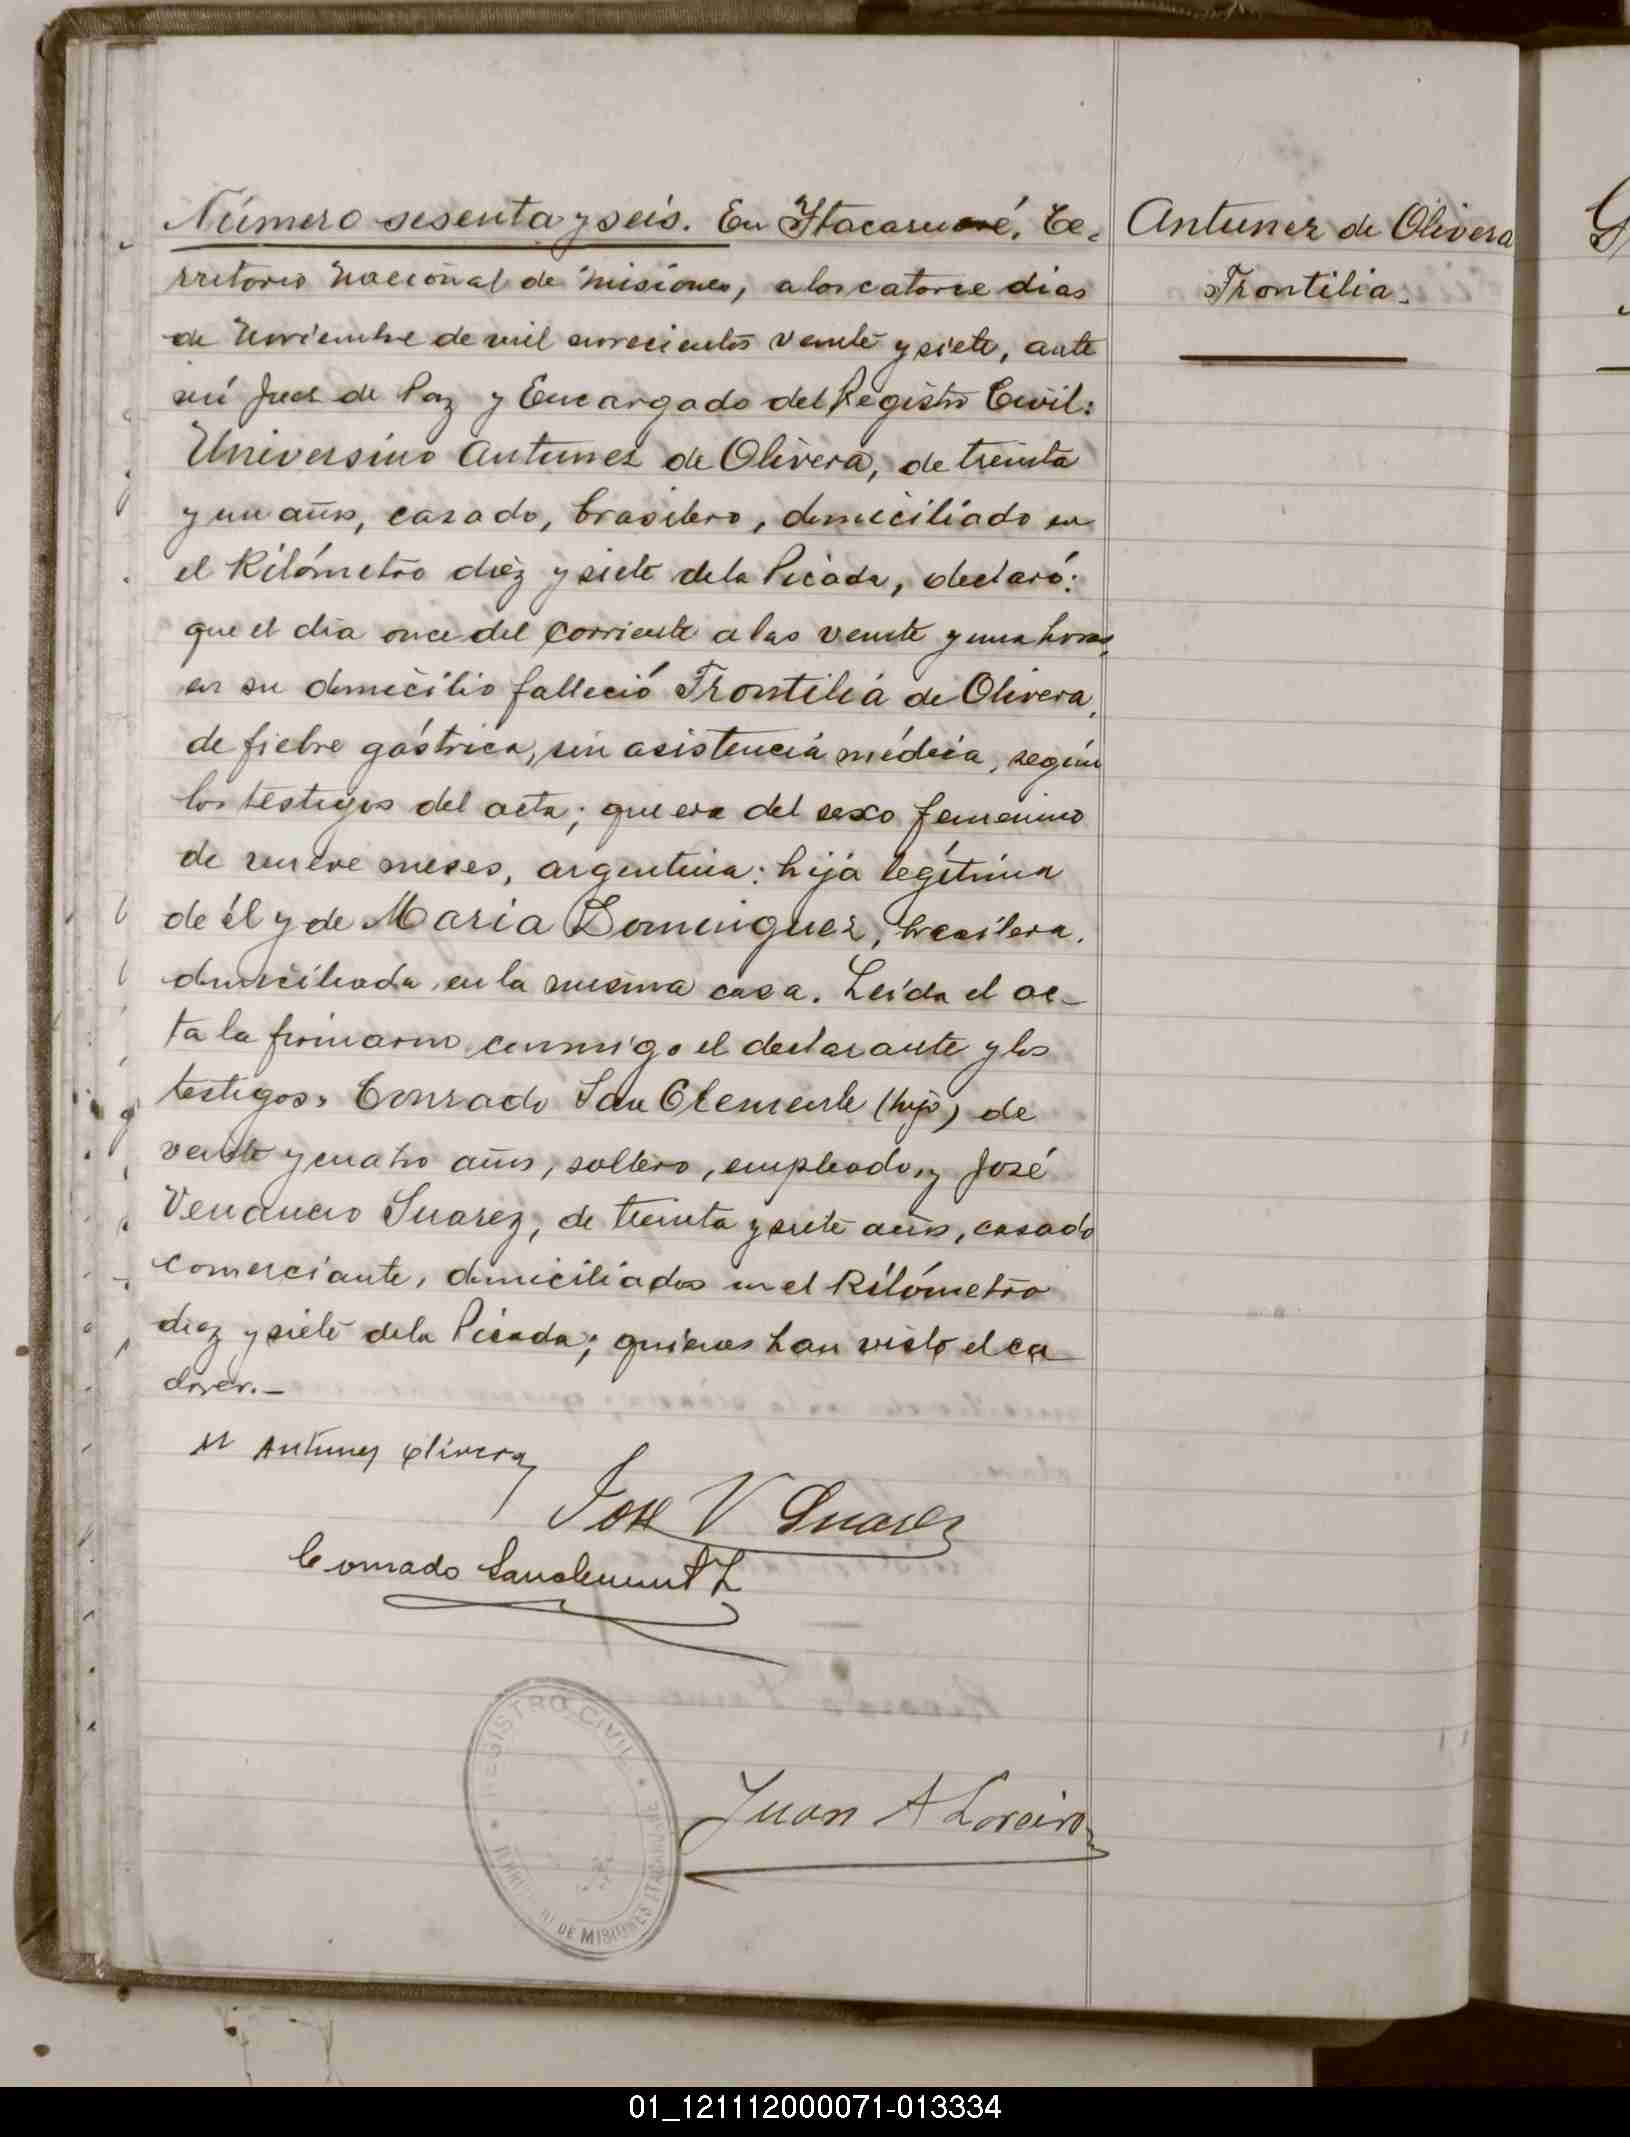 Número sesenta y seis. En Ytacaruaré, Te-
rritorio Nacional de Misiones, a los catorce dias
de Noviembre de mil novecientos veinte y siete, ante
mi Juez de Paz y Encargado del Registro Civil:
Universino Antunez de Olivera, de treinta
y un años, casado, brasilero, domiciliado en
el Kilómetro diez y siete de la Picada, declaró:
que el dia once del corriente a las veinte y una horas,
en su domicilio falleció Trontilia de Olivera,
de fiebre gástrica, sin asistencia médica, según
los testigos del acta; que era del sexo femenino
de nueve meses, argentina: hija legítima
de él y de Maria Dominguez, brasilera,
domiciliada en la misma casa. Leida el ac-
ta la firmaron conmigo el declarante y los
testigos, Conrado San Clemente (hijo) de
veinte y cuatro años, soltero, empleado, y José
Venancio Suarez, de treinta y siete años, casado
comerciante, domiciliados en el Kilómetro
diez y siete de la Picada; quienes han visto el ca
daver.-
Antunes Olivera
Jose V Suarez
Conrado Sanclemente h
REGISTRO CIVIL
DE MISIONES
Juan A Loreiro
Antunez de Olivera
Trontilia.
01_121112000071-013334